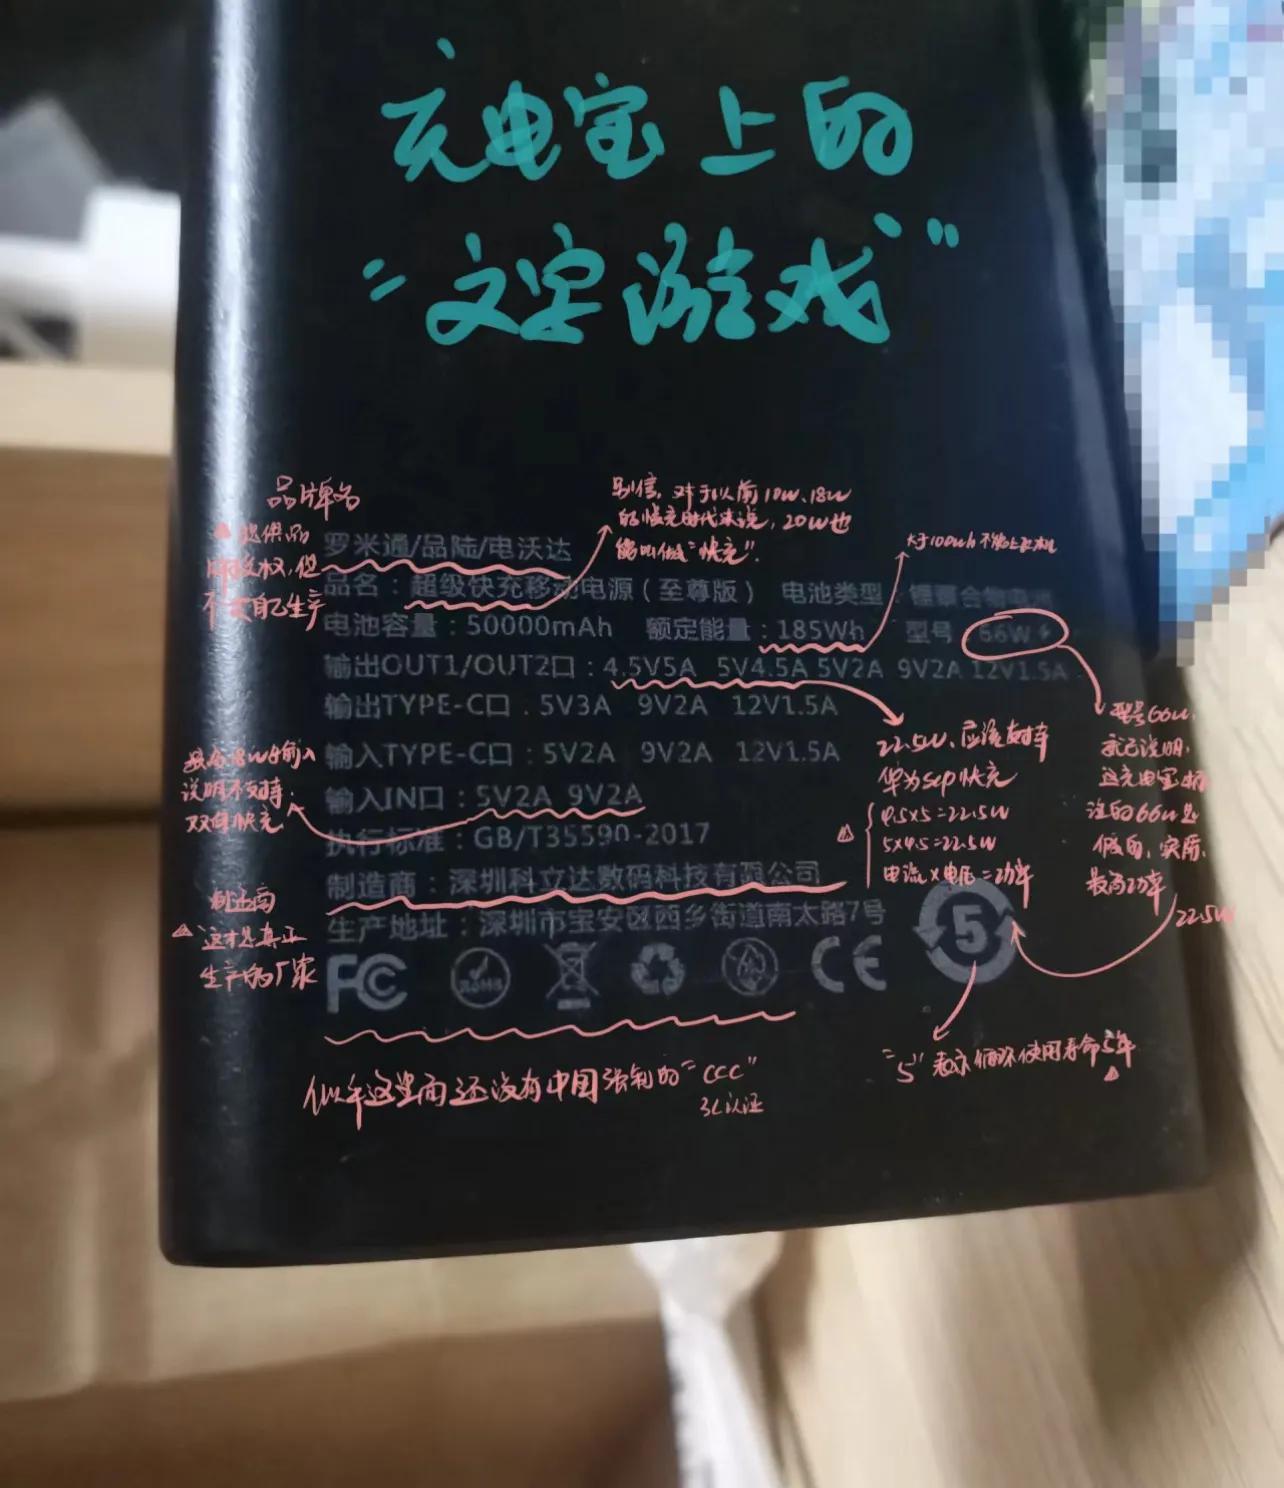 充电宝上的
“文字游戏”
品牌名
提供品
牌授权,但
不是自己生产
别信,对于以前10W、18W
的快充时代来说,20W也
能叫做“快充”.
大于100Wh不能上飞机
罗米通/品陆/电沃达
品名:超级快充移动电源(至尊版) 电池类型:锂聚合物电池
电池容量:50000mAh 额定能量:185Wh 型号 66W
输出OUT1/OUT2口:4.5V5A 5V4.5A 5V2A 9V2A 12V1.5A
输出TYPE-C口:5V3A 9V2A 12V1.5A
输入TYPE-C口:5V2A 9V2A 12V1.5A
输入IN口:5V2A 9V2A
执行标准:GB/T35590-2017
制造商:深圳科立达数码科技有限公司
生产地址:深圳市宝安区西乡街道南太路7号
最高18W的输入
说明不支持
双向快充
制造商
这才是真正
生产的厂家
22.5W、应该支持
华为scp快充
4.5x5=22.5W
5x4.5=22.5W
电流x电压=功率
型号66W,
就已说明,
这充电宝标
注的66W是
假的,实际
最高功率
22.5W
FC
RoHS
CE
5
似乎这里面还没有中国强制的“CCC”
3C认证
“5”表示循环使用寿命5年